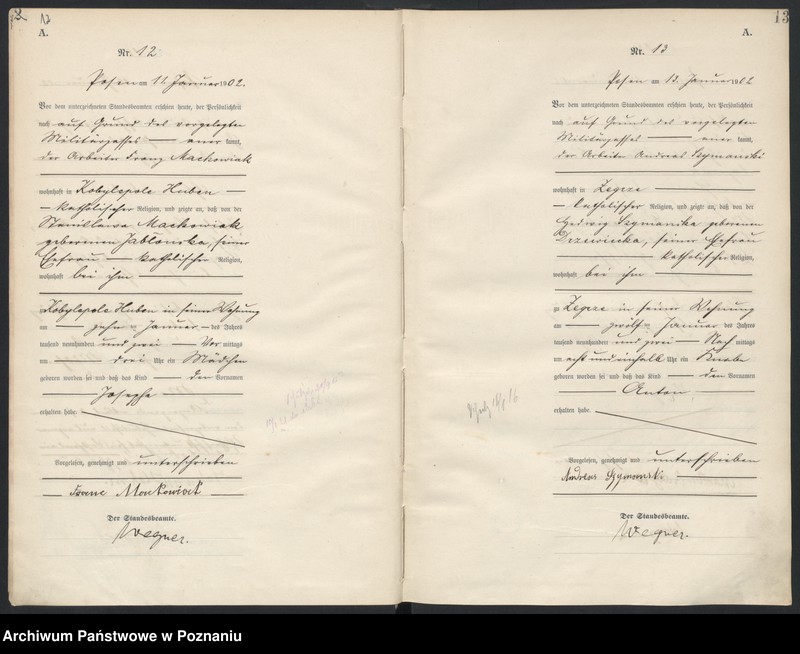 12
A.
Nr. 12
Posen am 11. Januar 1902.
Vor dem unterzeichneten Standesbeamten erschien heute, der Persönlichkeit
nach auf Grund des vorgelegten
Militärpasses — anerkannt,
der Arbeiter Franz Mackowiak
wohnhaft in Kobylepole Huben —
— katholischer Religion, und zeigte an, daß von der
Stanislawa Mackowiak
geborenen Jabłońska, seiner
Ehefrau — katholischer Religion,
wohnhaft bei ihm —
Kobylepole Huben in seiner Wohnung
am — zehn — Januar — des Jahres
tausend neunhundert und zwei — Vor mittags
um — drei Uhr ein Mädchen
geboren worden sei und daß das Kind — den Vornamen
Josepha
erhalten habe.
Vorgelesen, genehmigt und unterschrieben
— Franc Mackowiak —
Der Standesbeamte.
Wegner.
13
A.
Nr. 13
Posen am 13. Januar 1902
Vor dem unterzeichneten Standesbeamten erschien heute, der Persönlichkeit
nach auf Grund des vorgelegten
Militärpasses — anerkannt,
der Arbeiter Andreas Szymanski
wohnhaft in Zegrze —
— katholischer Religion, und zeigte an, daß von der
Hedwig Szymanska geborenen
seiner Ehefrau
— katholischer Religion,
wohnhaft bei ihm —
zu Zegrze in seiner Wohnung
am — zwölf — Januar des Jahres
tausend neunhundert und zwei — Nach mittags
um acht und einhalb Uhr ein Knabe
geboren worden sei und daß das Kind — den Vornamen
— Anton,
erhalten habe.
Vorgelesen, genehmigt und unterschrieben
Andreas Szymanski —
Der Standesbeamte.
Wegner.
Archiwum Państwowe w Poznaniu